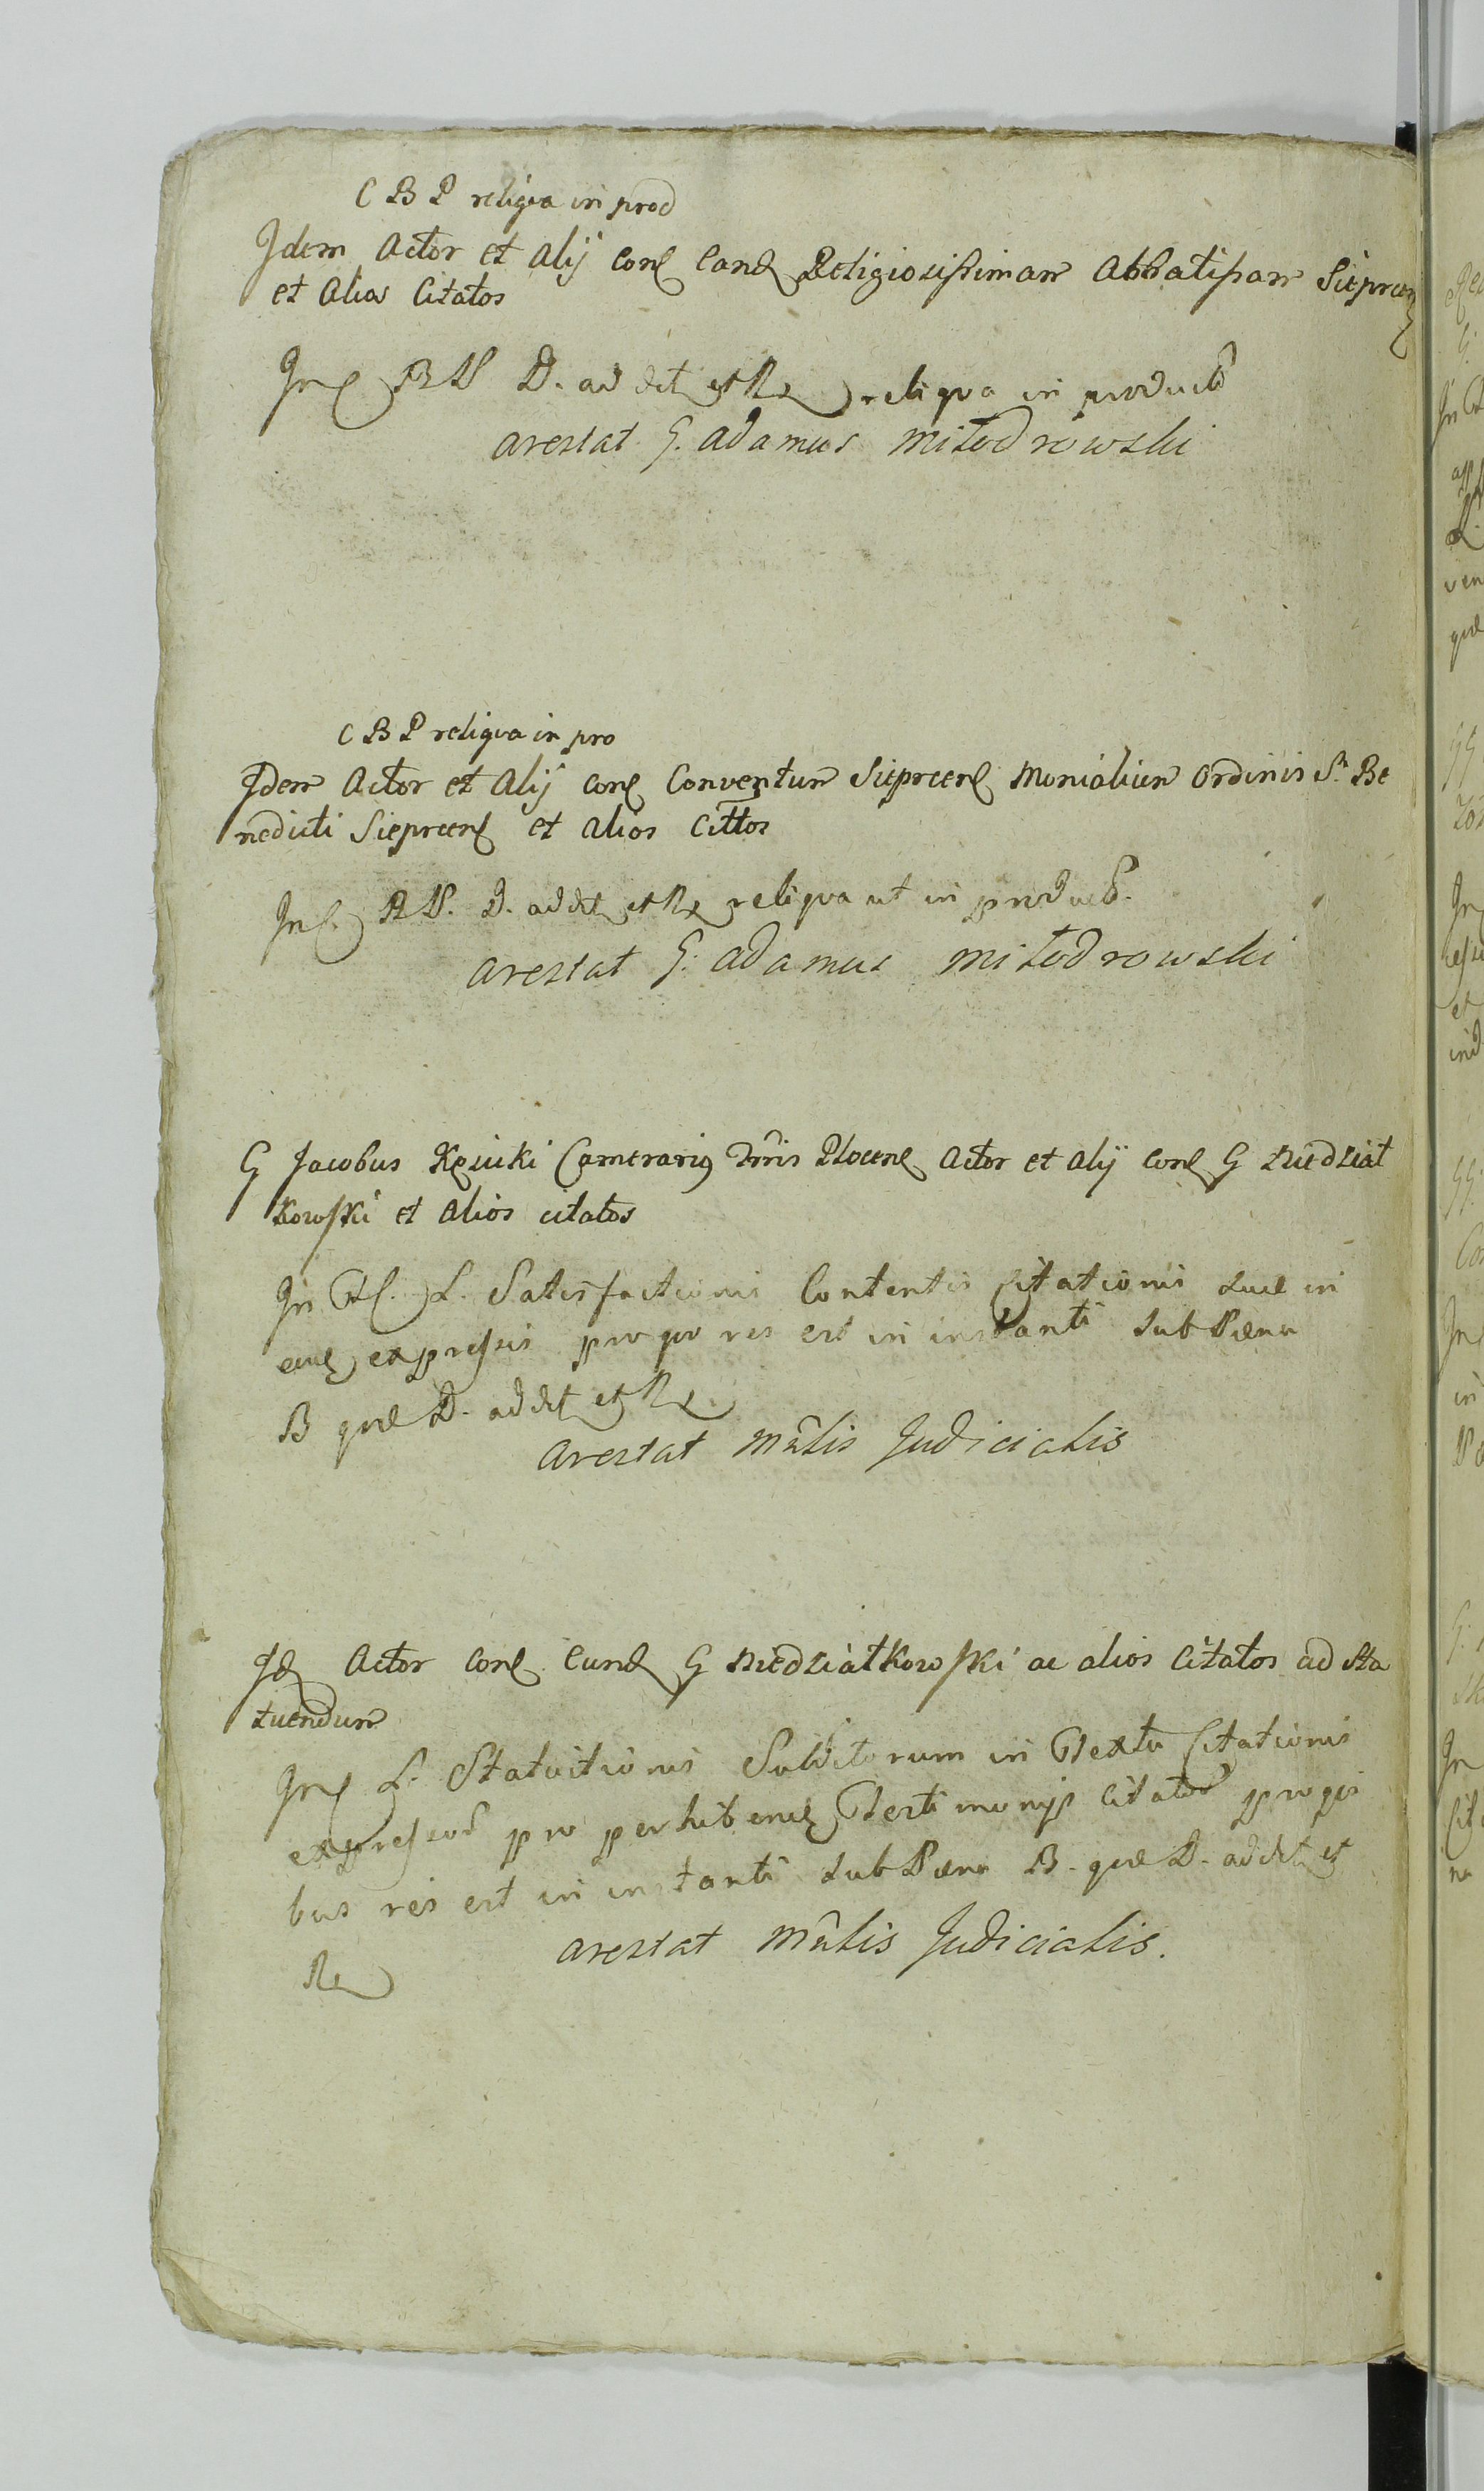 C B P reliqva in prod
Idem Actor et Alij con Eand Religiosissimam Abbatissam Sieprcen
et Alios Citatos
In BP D. addit et Re reliqva in product
arestat G. Adamus Miłodrowski
C B P reliqva in pro
Idem Actor et Alij con Conventum Sieprcen Monialium Ordinis S. Be
nedicti Sieprcen et Alios Cittos
In BP. D. addit et Re reliqva ut in product.
arestat G. Adamus Miłodrowski
G Jacobus Kęsicki Camerarius Trris Plocen Actor et Alij con G Niedział
kowski et Alios citatos
In L. Satisfactionis Contentis Citationis suae in
eaque expressis pro qvo res est in instanti sub Paena
B qvae D. addit et Re
arestat Mnlis Judicialis
Id Actor con Eund G Niedziałkowski ac alios Citatos ad Sta
tuendum
In L. Statuitionis Subditorum in Textu Citationis
expressor pro perhiben Testimonijs citator pro qvi
bus res est in instanti sub Paena B. qvae D. addit et
Re
arestat Mnlis Judicialis.